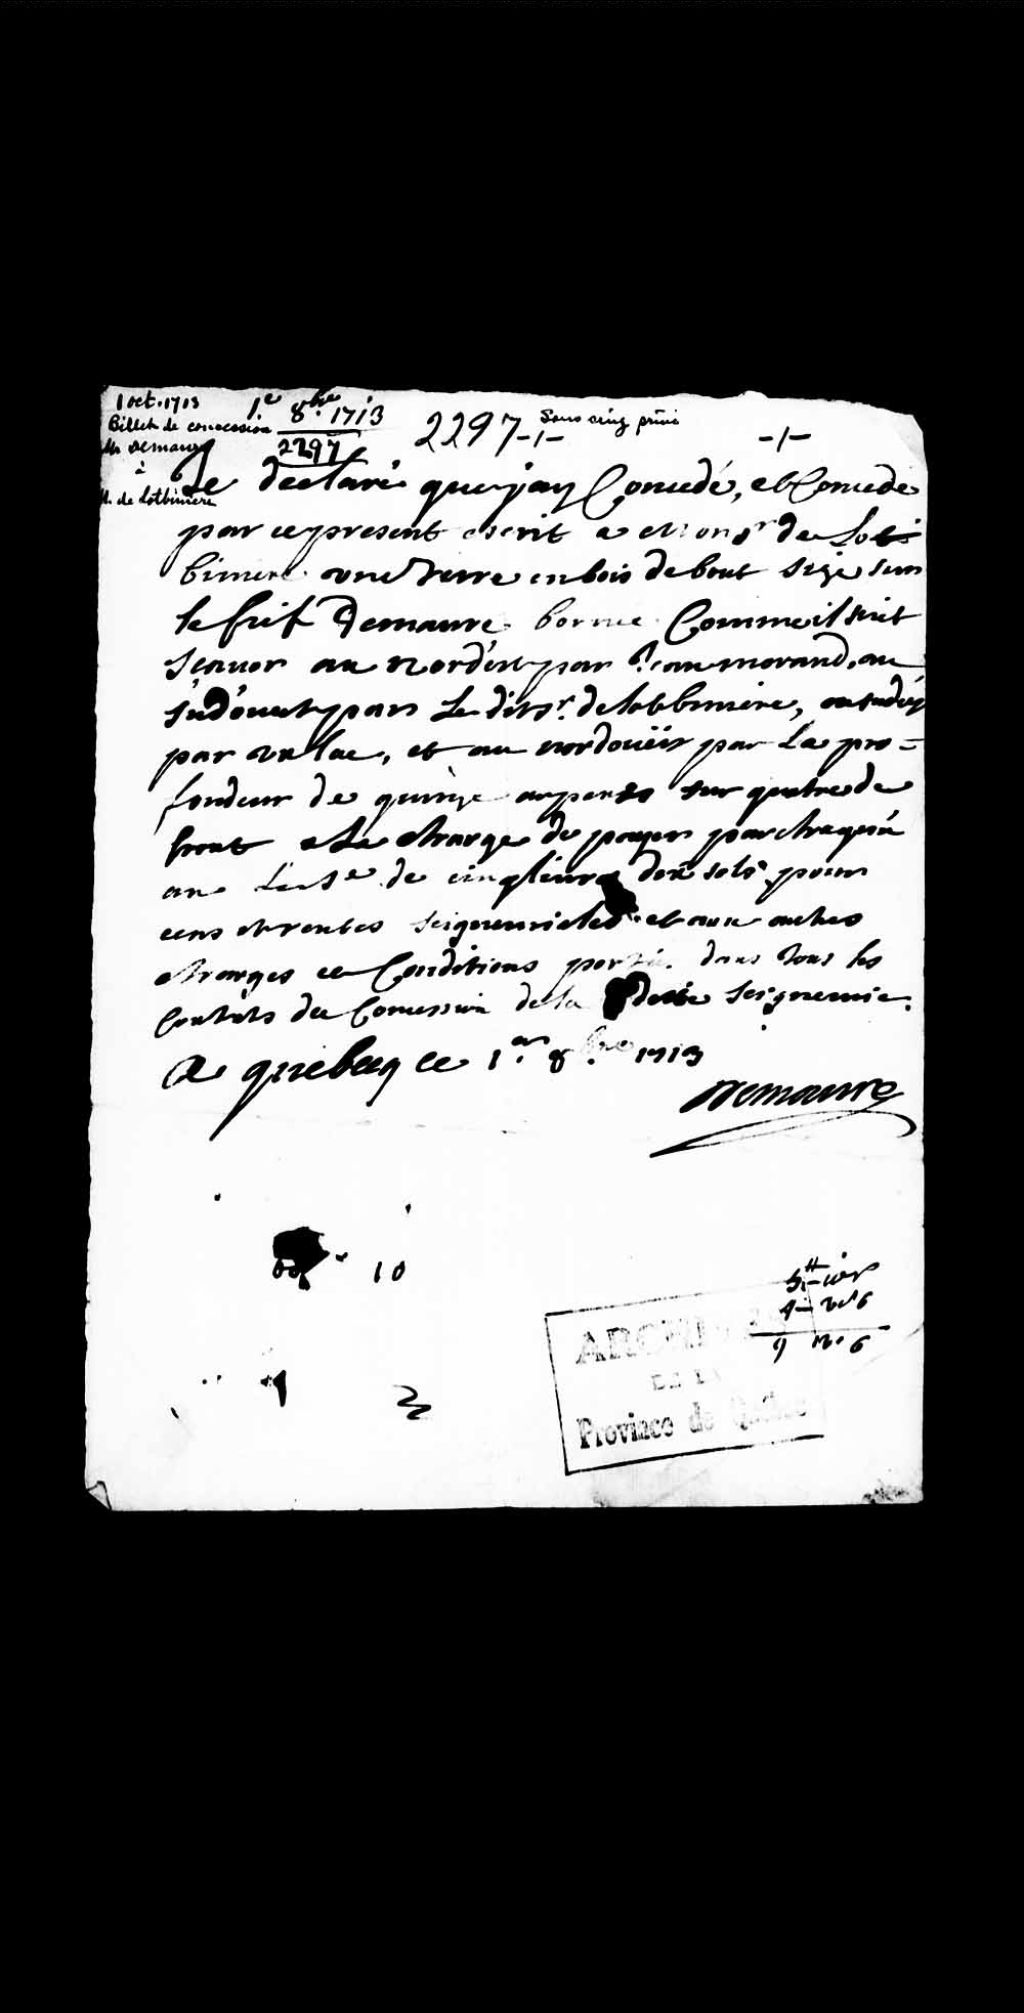 1 oct. 1713
Billet de concession
Mr Demaure
à
M. de Lotbiniere
1e 8bre 1713
2297
2297 -/-
Sous seing privé
-/-
Je declare que jay Concedé, et Concede
par ce present escrit a Monsr de Lotbi
biniere une terre en bois de bout size sur
le fief Demaure borné Comme il suit
sçavor au nordest par Jean morand, au
sudouest par Le dit sr. de lotbiniere, au sudest
par un lac, et au nordouest par La pro=
fondeur de quinze arpents sur quatre de
front a La charge de payer par chaqu'un
an de cinq livres dix sols pour
cens et rentes seigneuriales et aux autres
charges et Conditions portée dans tous les
Contrats de Concession de la ditte Seigneurie.
A quebecq ce 1er 8bre 1713
Demaure
10
9 6
ARCHIVES
DE LA
Province de Québec